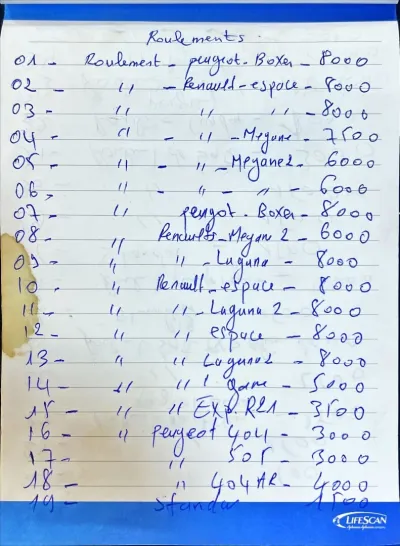 Roulements.
01 - Roulement - peugeot - Boxer - 8000
02 - " - Renault - espace - 8000
03 - " - " " - 8000
04 - " - " - Megane - 7500
05 - " - " - Megane 2 - 6000
06 - " - " - " - 6000
07 - " peugot - Boxer - 8000
08 - " Renault - Megan 2 - 6000
09 - " " - Laguna - 8000
10 - " Renault - espace - 8000
11 - " " - Laguna 2 - 8000
12 - " " espace - 8000
13 - " " Laguna 2 - 8000
14 - " " - 5000
15 - " " Exp. R21 - 3500
16 - " peugeot 404 - 3000
17 - " 505 - 3000
18 - " 404 AR - 4000
19 - standar 1500
LIFESCAN